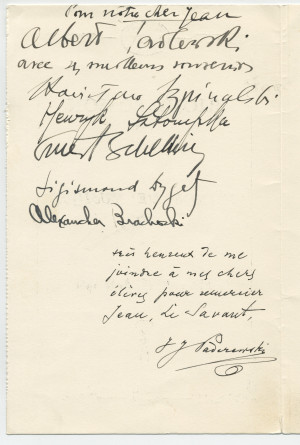 Pour notre cher Jean
Albert Tadlewski
avec ses meilleurs souvenirs
Stanislas Szpinalski
Henryk Sztompka
Ernest Schelling
Sigismond Dygat
Alexander Brachocki
très heureux de me
joindre à mes chers
élèves pour remercier
Jean, Le Savant,
I J Paderewski